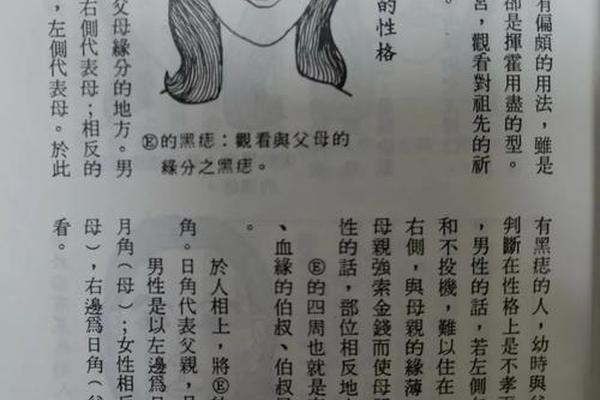 有偏頗的用法，雖是
卻是揮霍用盡的型。
宮，觀看對祖先的祈
。
的性格
Ⓔ的黑痣：觀看與父母的
緣分之黑痣。
父母緣分的地方。男
右側代表母；相反的
，左側代表母。於此
有黑痣的人，幼時與父
判斷在性格上是不孝
，男性的話，若左側
和不投機，難以住在
右側，與母親的緣薄
母親強索金錢而使母
性的話，部位相反地
Ⓔ的四周也就是
、血緣的伯叔、伯叔
。
於人相上，將Ⓔ
角。日角代表父親，月
男性是以左邊爲日
月角（母）；女性相反
母），右邊爲日角（父
看。